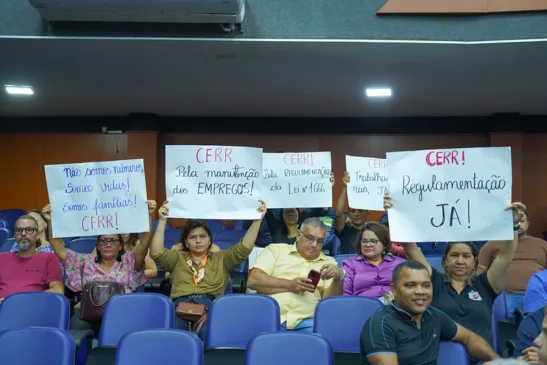 Não somos números,
Somos vidas!
Somos famílias!
CERR!
CERR
Pela manutenção
dos EMPREGOS!
CERR!
Pela REGULAMENTAÇÃO
da Lei nº 1666
CERR!
CERR!
Regulamentação
JÁ!